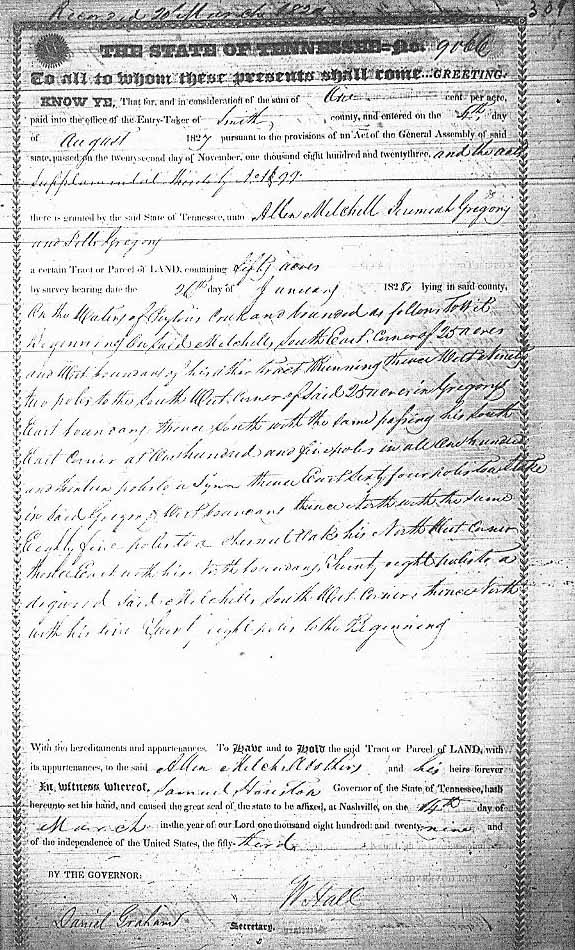 Recorded 20th March 1829
309
THE STATE OF TENNESSEE-No. 9066
To all to whom these presents shall come...GREETING.
KNOW YE, That for, and in consideration of the sum of One cent per acre,
paid into the office of the Entry-Taker of Smith county, and entered on the day
of August 1827 pursuant to the provisions of an Act of the General Assembly of said
state, passed on the twenty-second day of November, one thousand eight hundred and twentythree, and the acts
Supplemental thereto
there is granted by the said State of Tennessee, unto Allen Mitchell Jeremiah Gregory
and Gregory
a certain Tract or Parcel of LAND, containing fifty acres
by survey bearing date the 26th day of January 1828, lying in said county,
On the Waters of Creek and bounded as follows To Wit
Beginning On said Mitchells South East Corner of 25 acres
and West boundary of his other tract Running thence West Ninety
two poles to the South West Corner of Said 25 acres in Gregorys
East boundary thence South with the same passing his South
East Corner at One hundred and five poles in all One hundred
and thirteen poles to a Lynn thence East Sixty four poles to a Stake
in Said Gregorys West boundary thence North with the same
Eighty five poles to a Chesnut Oak his North West Corner
thence East with his North boundary Twenty eight poles to a
dogwood Said Mitchells South West Corner thence North
with his line Twenty eight poles to the Beginning
With the hereditaments and appurtenances. To Have and to Hold the said Tract or Parcel of LAND, with
its appurtenances, to the said Allen Mitchell & others and his heirs forever
In witness whereof, Samuel Houston Governor of the State of Tennessee, hath
hereunto set his hand, and caused the great seal of the state to be affixed, at Nashville, on the 14th day of
March in the year of our Lord one thousand eight hundred and twenty nine and
of the independence of the United States, the fifty-third
BY THE GOVERNOR:
W Hall
Daniel Graham Secretary.